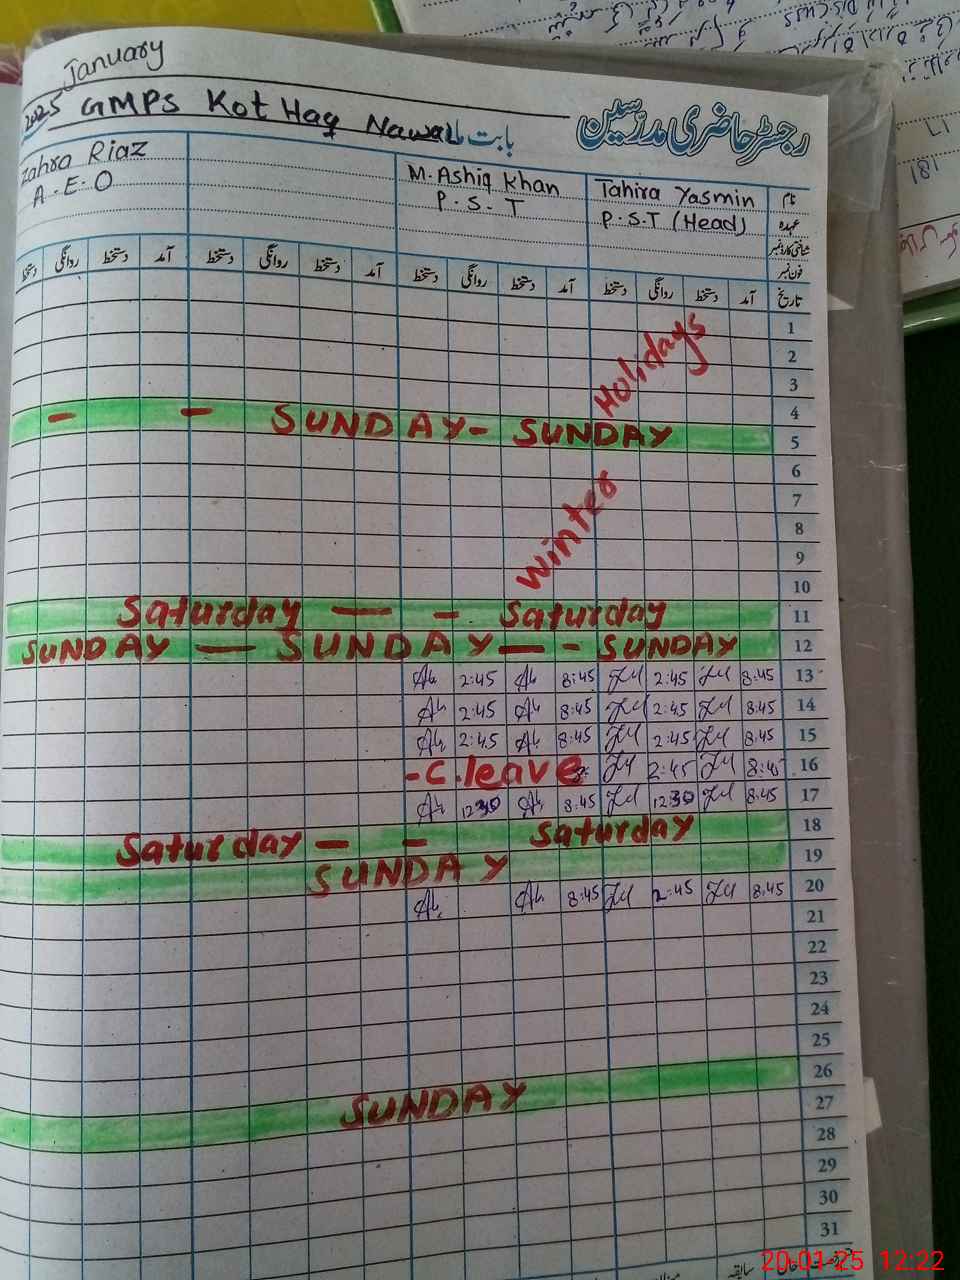 January
2025 GMPS Kot Haq Nawaz بابت ماہ رجسٹر حاضری مدرسین
Zahra Riaz M. Ashiq Khan Tahira Yasmin نام
A.E.O P.S.T P.S.T (Head) عہدہ
شناختی کارڈ نمبر
فون نمبر
دستخط روانگی دستخط آمد دستخط روانگی دستخط آمد دستخط روانگی دستخط آمد دستخط روانگی دستخط آمد تاریخ
1
2
Holidays
3
4
- - SUNDAY - SUNDAY 5
6
7
8
Winter
9
10
Saturday — - Saturday 11
SUNDAY — SUNDAY — - SUNDAY 12
2:45 8:45 2:45 8:45 13
2:45 8:45 2:45 8:45 14
2:45 8:45 2:45 8:45 15
- C. leave 2:45 8:45 16
12:30 8:45 12:30 8:45 17
Saturday - - Saturday 18
SUNDAY 19
8:45 2:45 8:45 20
21
22
23
24
25
SUNDAY 26
27
28
29
30
31
20-01-25 12:22